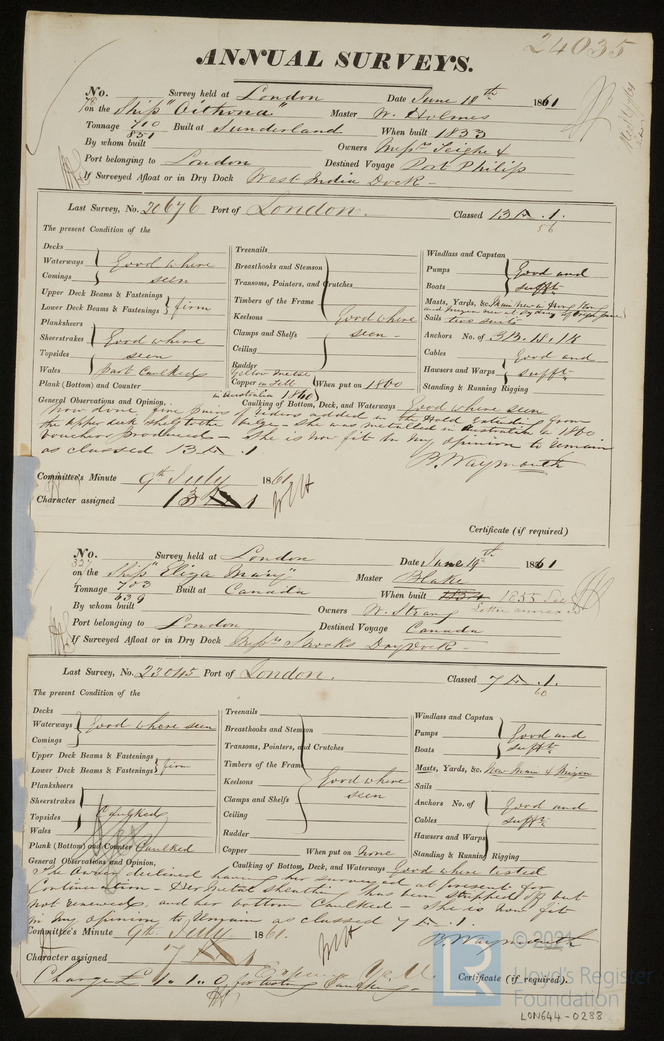 24035
ANNUAL SURVEYS.
No. 78 Survey held at London Date June 10th 1861
on the Ship "Oithona" Master W. Holmes
Tonnage 710 / 851 Built at Sunderland When built 1853
By whom built Owners Messrs Teighe &
Port belonging to London Destined Voyage Port Philip
If Surveyed Afloat or in Dry Dock West India Dock -
Last Survey, No. 20676 Port of London. Classed 13 A .1.
56
The present Condition of the
Decks
Waterways
Comings
Good where seen
Upper Deck Beams & Fastenings
Lower Deck Beams & Fastenings
firm
Planksheers
Sheerstrakes
Topsides
Wales
Good where seen
part Caulked
Plank (Bottom) and Counter
Treenails
Breasthooks and Stemson
Transoms, Pointers, and Crutches
Timbers of the Frame
Keelsons
Clamps and Shelfs
Ceiling
Rudder
Good where seen -
Copper Yellow Metal in Full When put on 1860
in Australia 1860
Windlass and Capstan
Pumps
Boats
Good and sufft.
Masts, Yards, &c.
Sails two suits
Anchors No. of 3B. 1S. 1K
Cables
Hawsers and Warps
Good and sufft.
Standing & Running Rigging
General Observations and Opinion, Caulking of Bottom, Deck, and Waterways Good where seen
Now done, five pairs of riders added in the Hold Extending from
the upper deck shelf to the bilge - She was metalled in Australia in 1860
Vouchers produced - She is now fit in my opinion to remain
as classed 13 A .1
B. Waymouth
Committee's Minute 9th July 1861
Character assigned 13 A 1
Certificate (if required)
No. 337 Survey held at London Date June 19th 1861
on the Ship "Eliza Mary" Master Blake
Tonnage 703 / 639 Built at Canada When built 1854 1855 See
Letter annexed
By whom built Owners W. Strang
Port belonging to London Destined Voyage Canada
If Surveyed Afloat or in Dry Dock Messrs Brooks Dry Dock -
Last Survey, No. 23045 Port of London. Classed 7 A .1.
60
The present Condition of the
Decks
Waterways
Comings
Good where seen
Upper Deck Beams & Fastenings
Lower Deck Beams & Fastenings
firm
Planksheers
Sheerstrakes
Topsides
Wales
Caulked
Plank (Bottom) and Counter Caulked
Treenails
Breasthooks and Stemson
Transoms, Pointers, and Crutches
Timbers of the Frame
Keelsons
Clamps and Shelfs
Ceiling
Rudder
Good where seen
Copper When put on None
Windlass and Capstan
Pumps
Boats
Good and sufft.
Masts, Yards, &c. New Main & Mizen
Sails
Anchors No. of
Cables
Hawsers and Warps
Good and sufft.
Standing & Running Rigging
General Observations and Opinion, Caulking of Bottom, Deck, and Waterways Good where tested
The Owner declined having her surveyed at present for
Continuation - Her Metal Sheathing has been stripped off but
not renewed, and her bottom Caulked - She is now fit
in my opinion to remain as classed 7 A .1.
B. Waymouth
Committee's Minute 9th July 1861.
Character assigned 7 A 1
Charge £ 1 .. 1 .. 0 for testing Caulking -
Certificate (if required).
© 2021
LR
Lloyd's Register
Foundation
LON644-0288